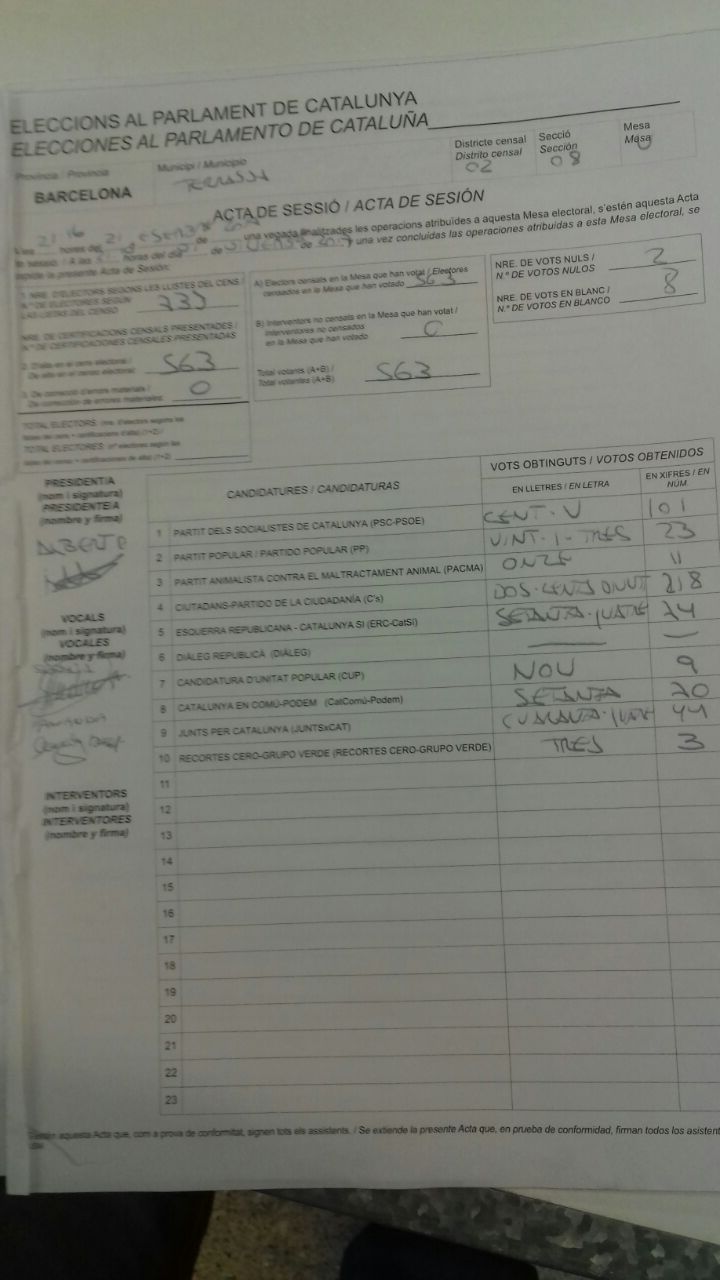 ELECCIONS AL PARLAMENT DE CATALUNYA
ELECCIONES AL PARLAMENTO DE CATALUÑA
Província / Provincia
Municipi / Municipio
Districte censal
Distrito censal
Secció
Sección
Mesa
Mesa
BARCELONA
02
08
U
ACTA DE SESSIÓ / ACTA DE SESIÓN
hores del 21 de una vegada finalitzades les operacions atribuïdes a aquesta Mesa electoral, s'estén aquesta Acta
de sessió. / A las horas del día de de 2017 una vez concluidas las operaciones atribuidas a esta Mesa electoral, se
expide la presente Acta de Sesión:
1. NRE. D'ELECTORS SEGONS LES LLISTES DEL CENS /
N.º DE ELECTORES SEGÚN
LAS LISTAS DEL CENSO
NRE. DE CERTIFICACIONS CENSALS PRESENTADES /
N.º DE CERTIFICACIONES CENSALES PRESENTADAS
2. D'alta en el cens electoral /
De alta en el censo electoral: 563
3. De correcció d'errors materials /
De corrección de errores materiales: 0
TOTAL ELECTORS:
TOTAL ELECTORES:
A) Electors censats en la Mesa que han votat / Electores
censados en la Mesa que han votado 563
B) Interventors no censats en la Mesa que han votat /
Interventores no censados
en la Mesa que han votado 0
Total votants (A+B) /
Total votantes (A+B) 563
NRE. DE VOTS NULS /
N.º DE VOTOS NULOS 2
NRE. DE VOTS EN BLANC /
N.º DE VOTOS EN BLANCO 8
PRESIDENT/A
(nom i signatura)
PRESIDENTE/A
(nombre y firma)
VOCALS
(nom i signatura)
VOCALES
(nombre y firma)
INTERVENTORS
(nom i signatura)
INTERVENTORES
(nombre y firma)
CANDIDATURES / CANDIDATURAS
VOTS OBTINGUTS / VOTOS OBTENIDOS
EN LLETRES / EN LETRA
EN XIFRES / EN
NÚM.
1 PARTIT DELS SOCIALISTES DE CATALUNYA (PSC-PSOE) CENT-U 101
2 PARTIT POPULAR / PARTIDO POPULAR (PP) VINT-I-TRES 23
3 PARTIT ANIMALISTA CONTRA EL MALTRACTAMENT ANIMAL (PACMA) ONZE 11
4 CIUTADANS-PARTIDO DE LA CIUDADANÍA (C's) DOS-CENTS DIVUIT 218
5 ESQUERRA REPUBLICANA - CATALUNYA SÍ (ERC-CatSí) SETANTA-QUATRE 74
6 DIÀLEG REPUBLICÀ (DIÀLEG)
7 CANDIDATURA D'UNITAT POPULAR (CUP) NOU 9
8 CATALUNYA EN COMÚ-PODEM (CatComú-Podem) SETANTA 70
9 JUNTS PER CATALUNYA (JUNTSxCAT) 44
10 RECORTES CERO-GRUPO VERDE (RECORTES CERO-GRUPO VERDE) TRES 3
11
12
13
14
15
16
17
18
19
20
21
22
23
aquesta Acta que, com a prova de conformitat, signen tots els assistents. / Se extiende la presente Acta que, en prueba de conformidad, firman todos los asistent